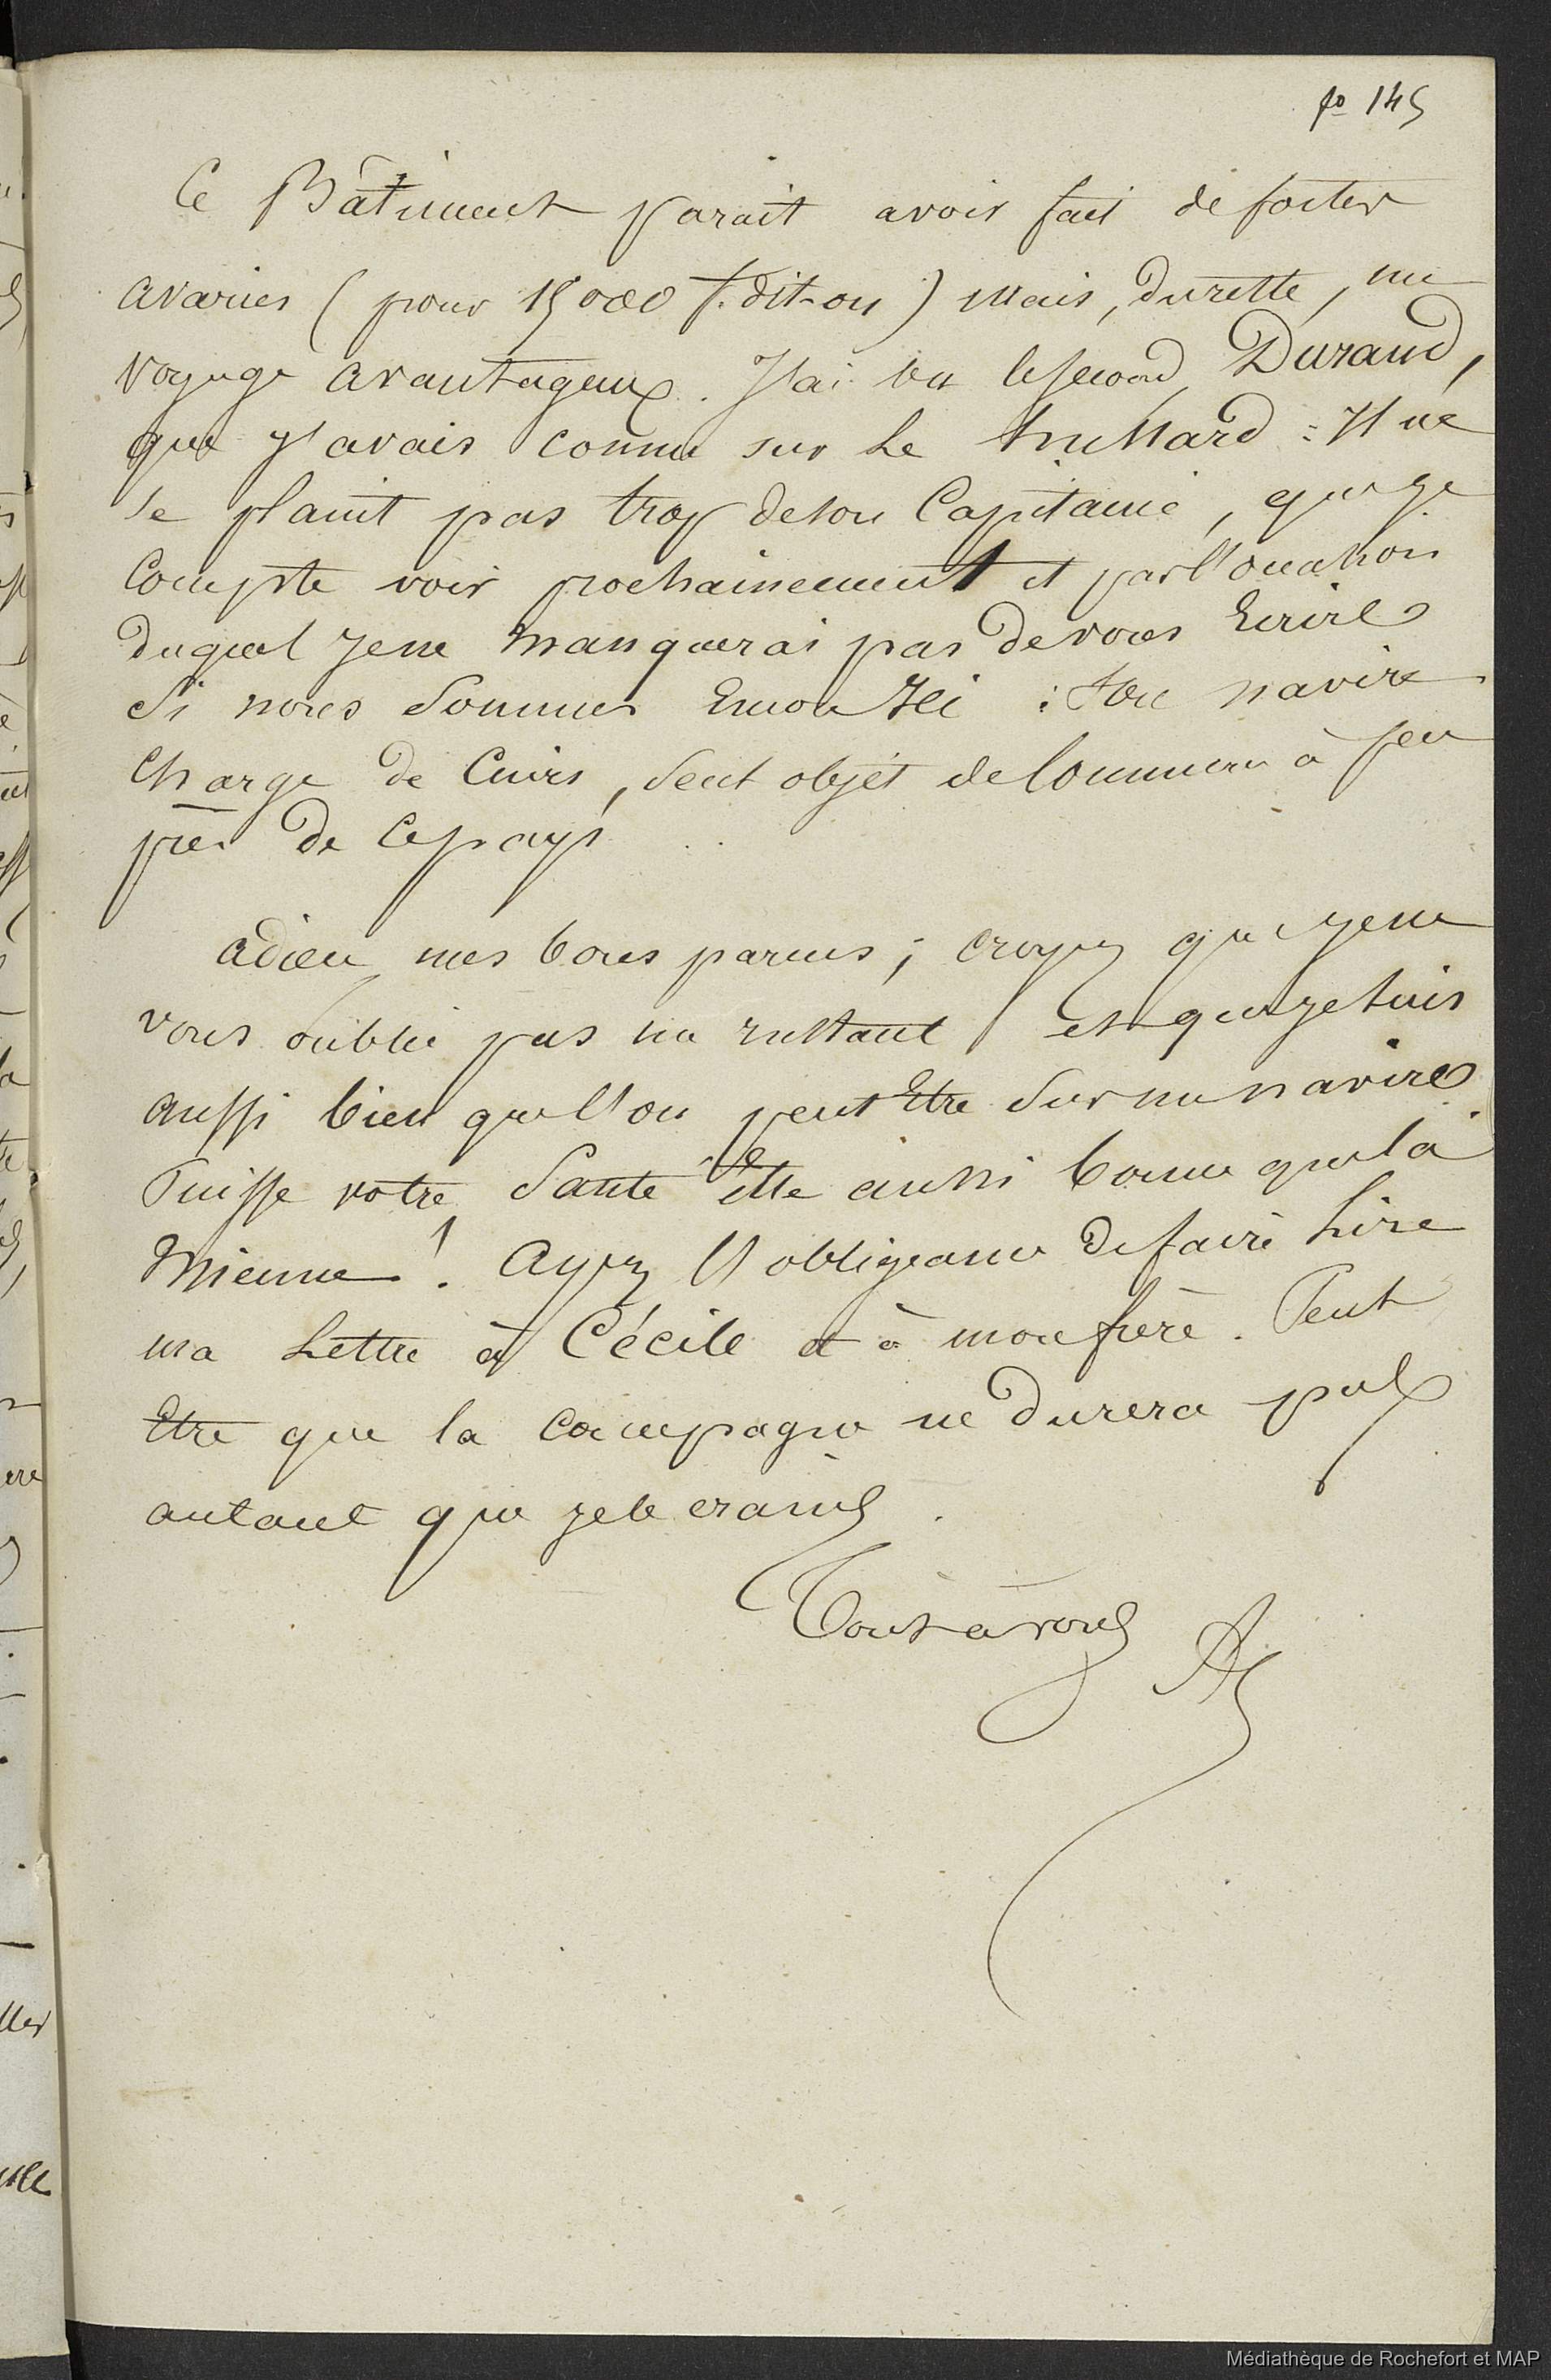 fo 145
Ce Bâtiment parait avoir fait de fortes
avaries (pour 15000 f. dit-on) mais, dureste, un
voyage avantageux. J'ai vu lesecond Durand,
que j'avais connu sur Le : Il ne
se plaint pas trop deson Capitaine, queje
Compte voir prochainement et parl'occasion
duquel Jene manquerai pas devous Ecrire
Si nous Sommes Encore Ici : Son navire
Charge de Cuirs, Seul objet deCommerce à peu
près de Cepays
adieu mes bons parens ; croyez que jene
vous oublie pas un instant et quejesuis
aussi bien quel'on peut Etre Sur un navire.
Puisse votre Santé être aussi bonne quela
Mienne ! Ayez l'obligeance defaire Lire
ma Lettre à Cécile et à monfrère. Peut
Etre que la campagne ne durera pas
autant que jele crains.
Tout à vous
Médiathèque de Rochefort et MAP